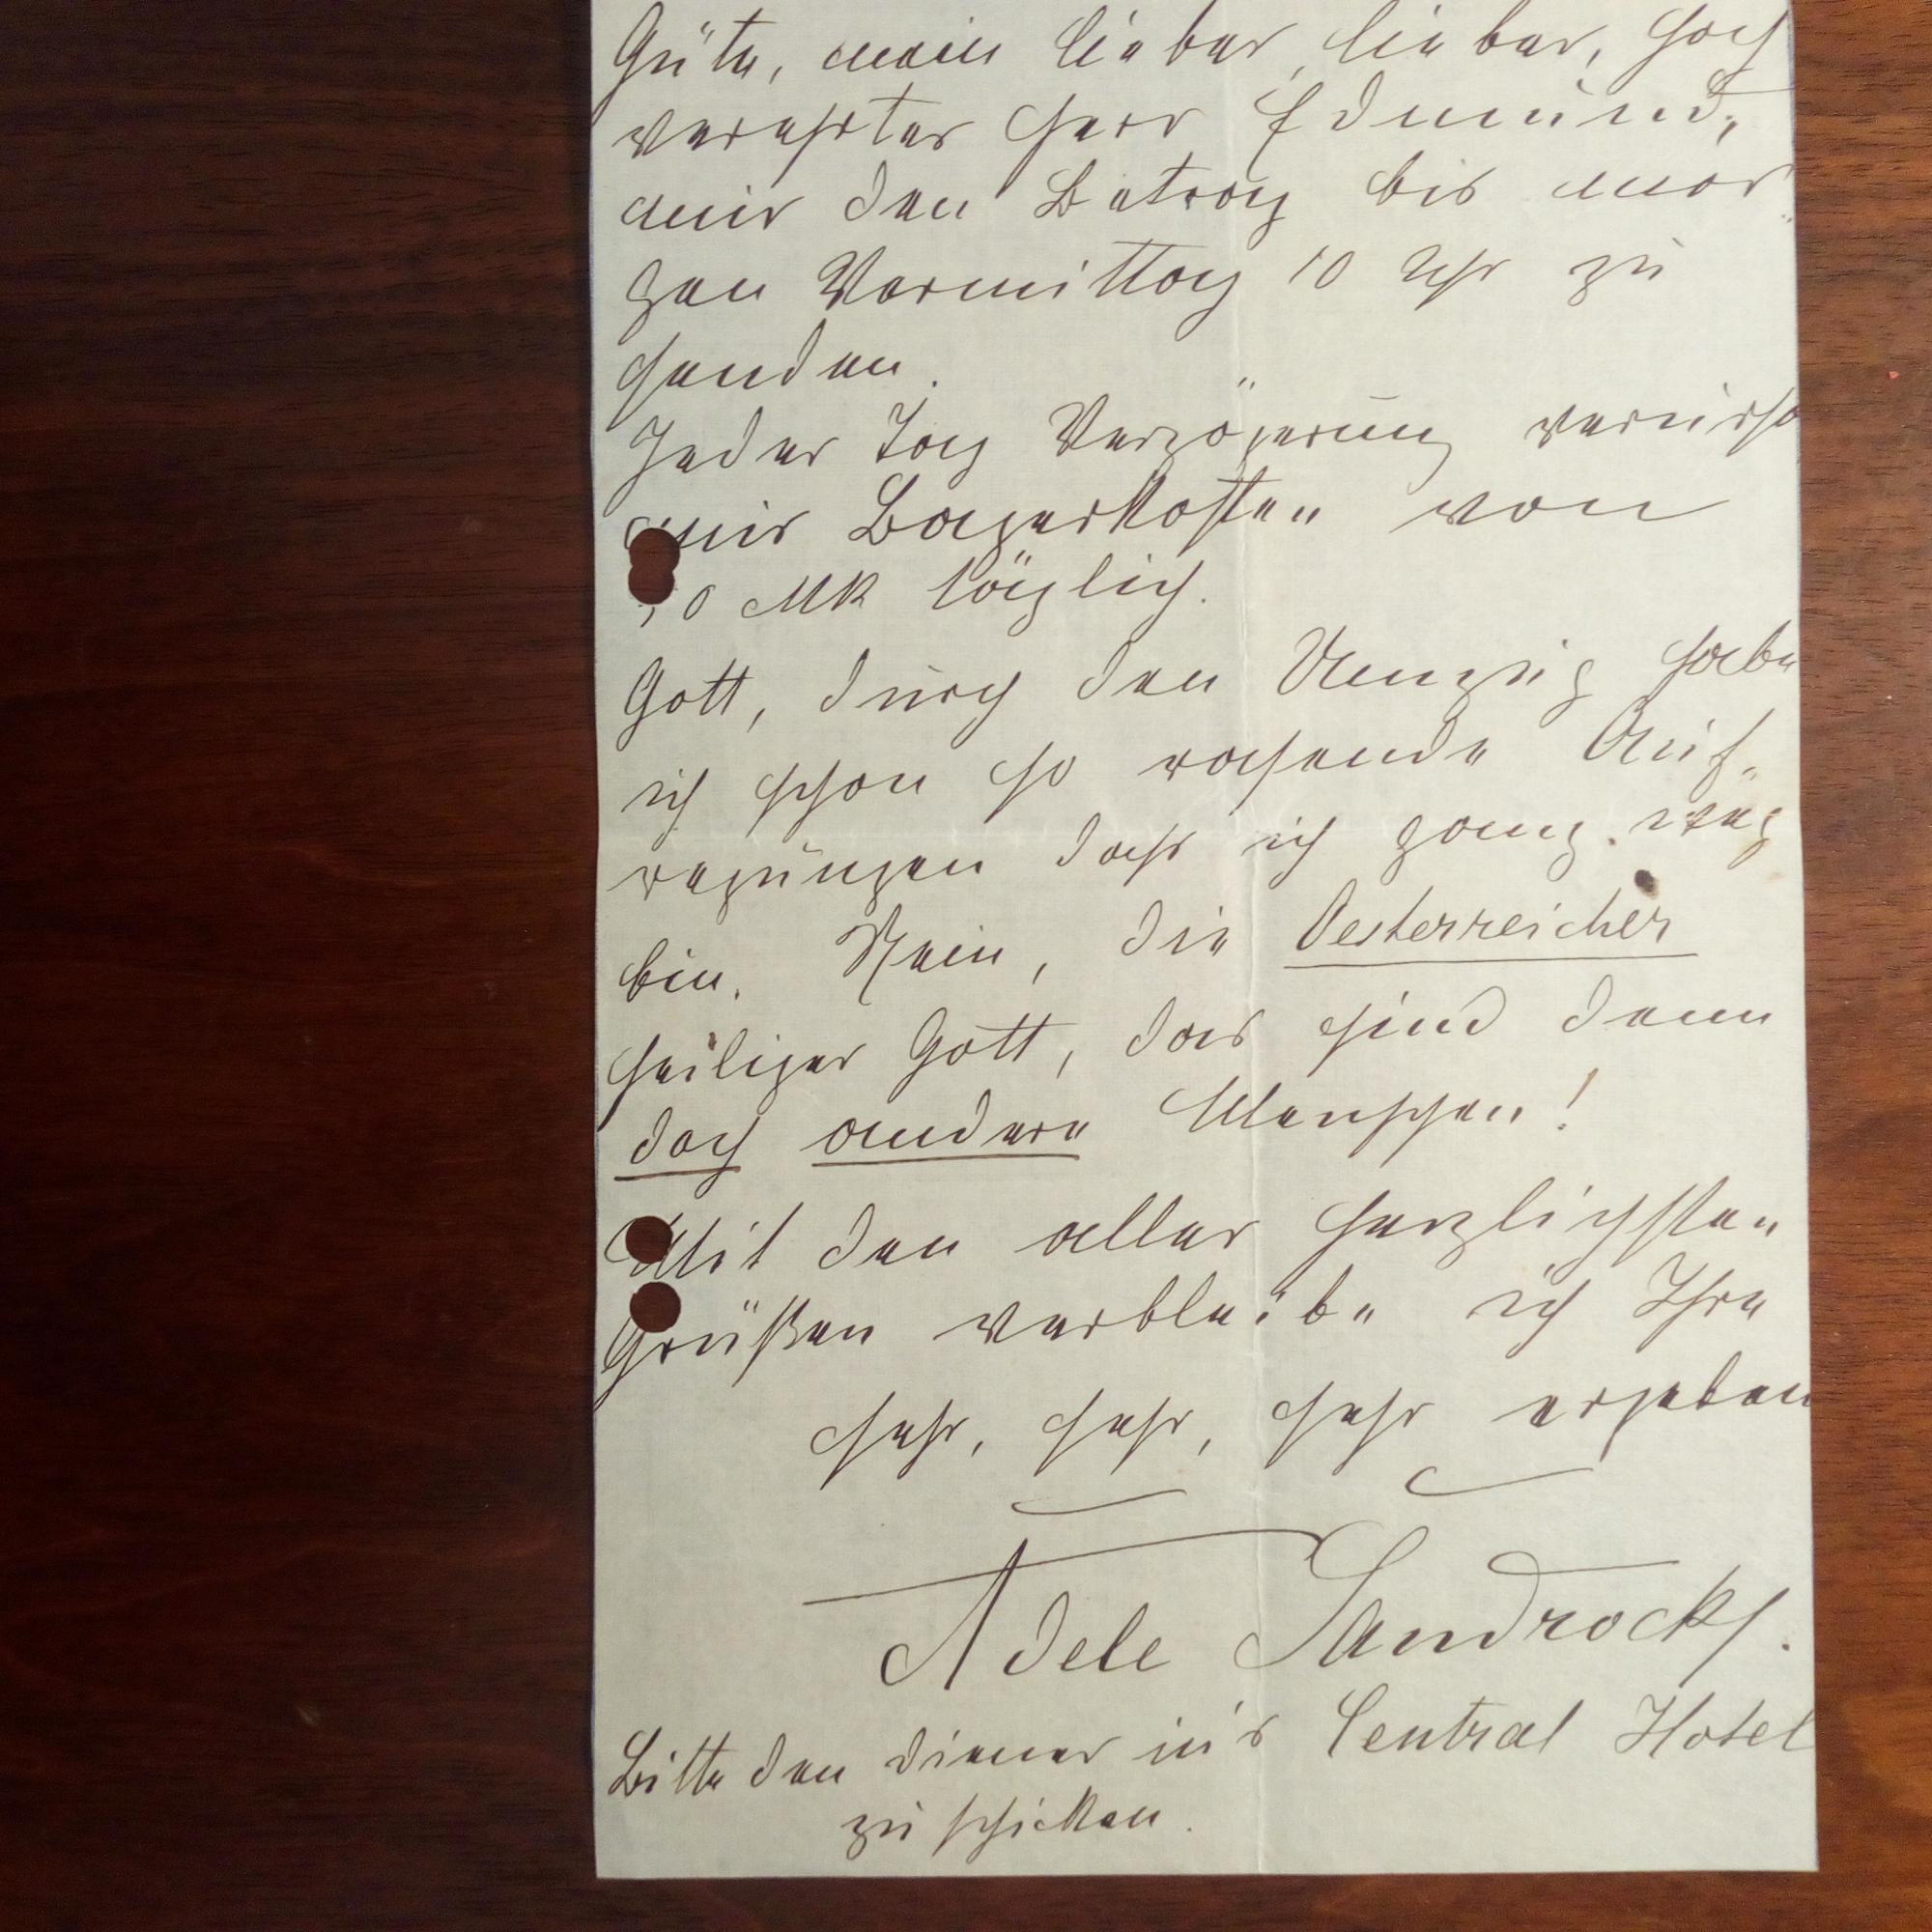 Güte, mein lieber, lieber, hoch
verehrter Herr Edmund,
mir den Betrag bis mor
gen Vormittag 10 Uhr zu
senden.
Jeder Tag Verzögerung verursa
mir Lagerkosten von
0 MK täglich.
Gott, durch den Umzug habe
ich schon so rasende Auf-
regungen dass ich ganz weg
bin. Nein, die Oesterreicher
heiliger Gott, das sind denn
doch andere Menschen!
Mit den aller herzlichsten
Grüßen verbleibe ich Ihre
sehr, sehr, sehr ergeben
Adele Sandrock.
Bitte den Diener in's Central Hotel
zu schicken.